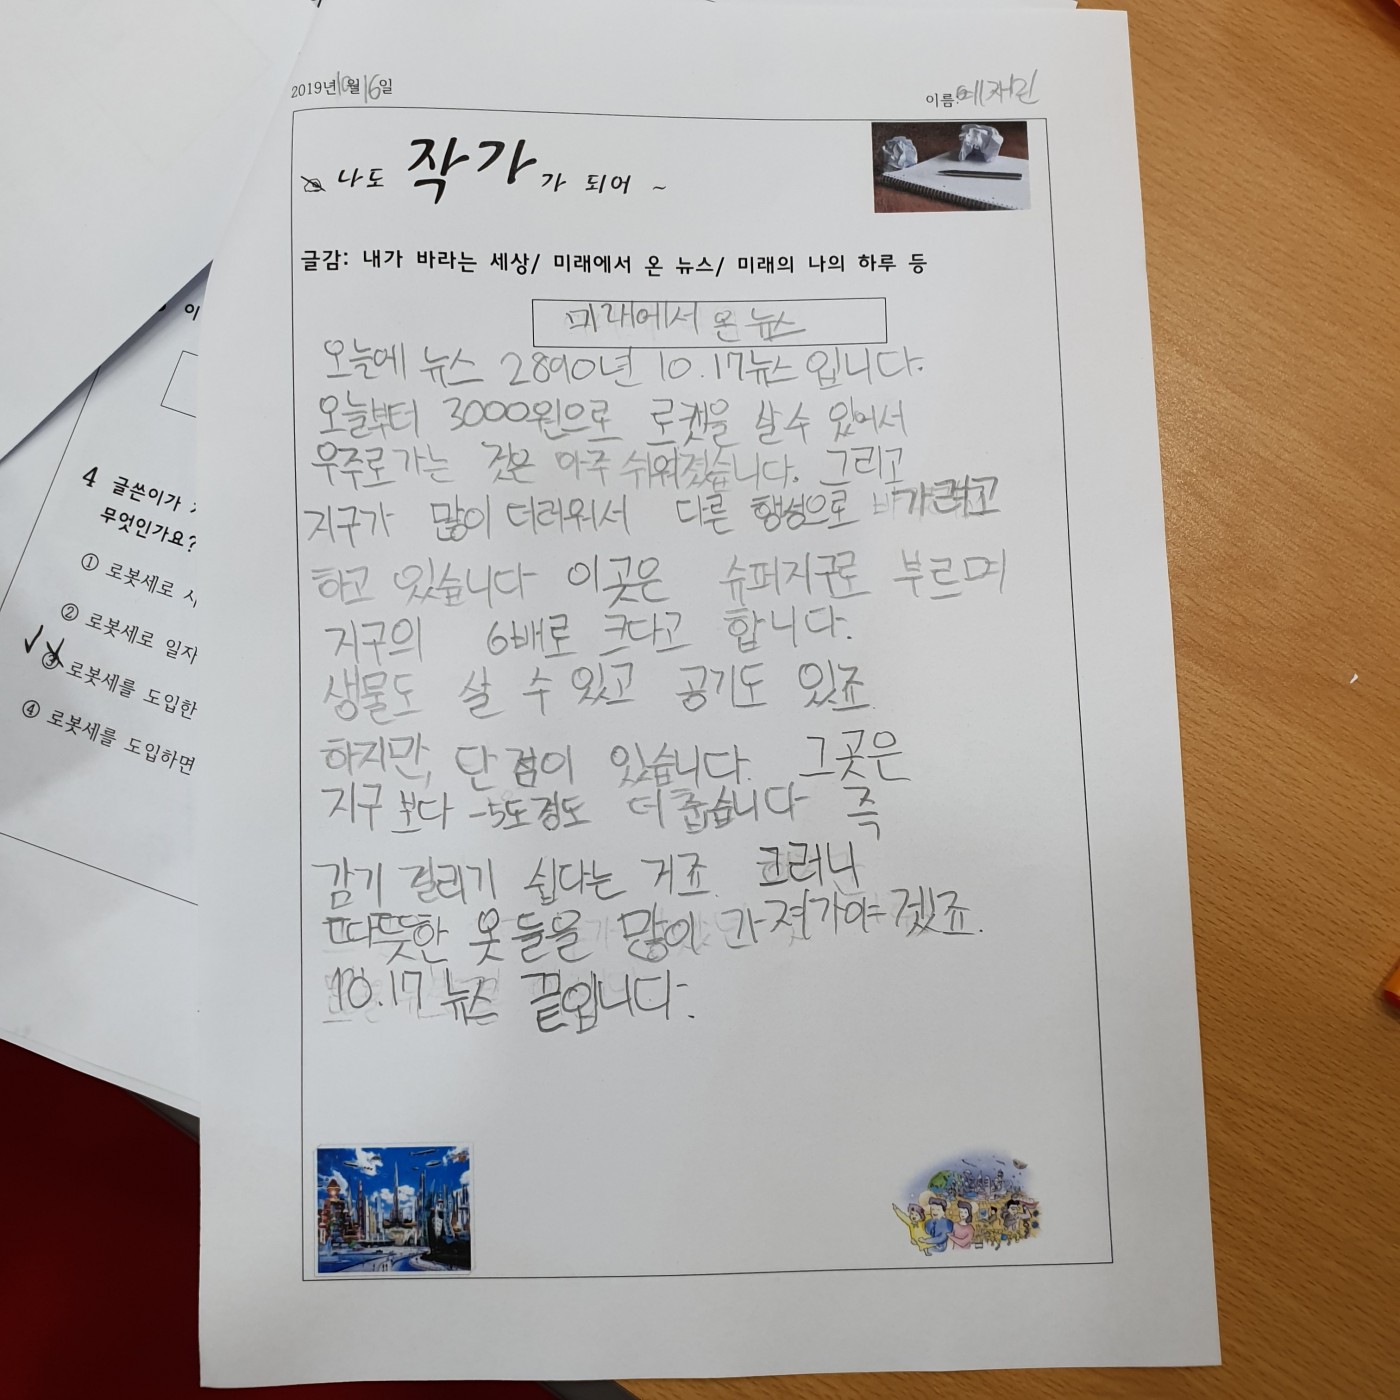 2019년10월16일
이름:예채린
나도 작가가 되어 ~
글감: 내가 바라는 세상/ 미래에서 온 뉴스/ 미래의 나의 하루 등
미래에서 온 뉴스
오늘에 뉴스 2890년 10.17뉴스 입니다.
오늘부터 3000원으로 로켓을 살 수 있어서
우주로 가는 것은 아주 쉬워졌습니다. 그리고
지구가 많이 더러워서 다른 행성으로 가려고
하고 있습니다 이곳은 슈퍼지구로 부르며
지구의 6배로 크다고 합니다.
생물도 살 수 있고 공기도 있죠.
하지만, 단점이 있습니다. 그곳은
지구보다 -5도정도 더 춥습니다 즉
감기 걸리기 쉽다는 거죠. 그러니
따뜻한 옷들을 많이 가져가야겠죠.
10.17 뉴스 끝입니다.
이
4 글쓴이가
무엇인가요?
① 로봇세로
② 로봇세로 일자
③ 로봇세를 도입한
④ 로봇세를 도입하면